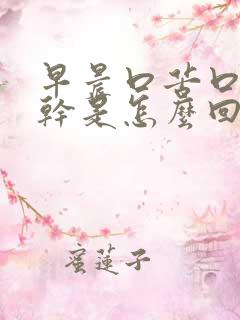 早晨口苦口
幹是怎麼回
蜜蓮子